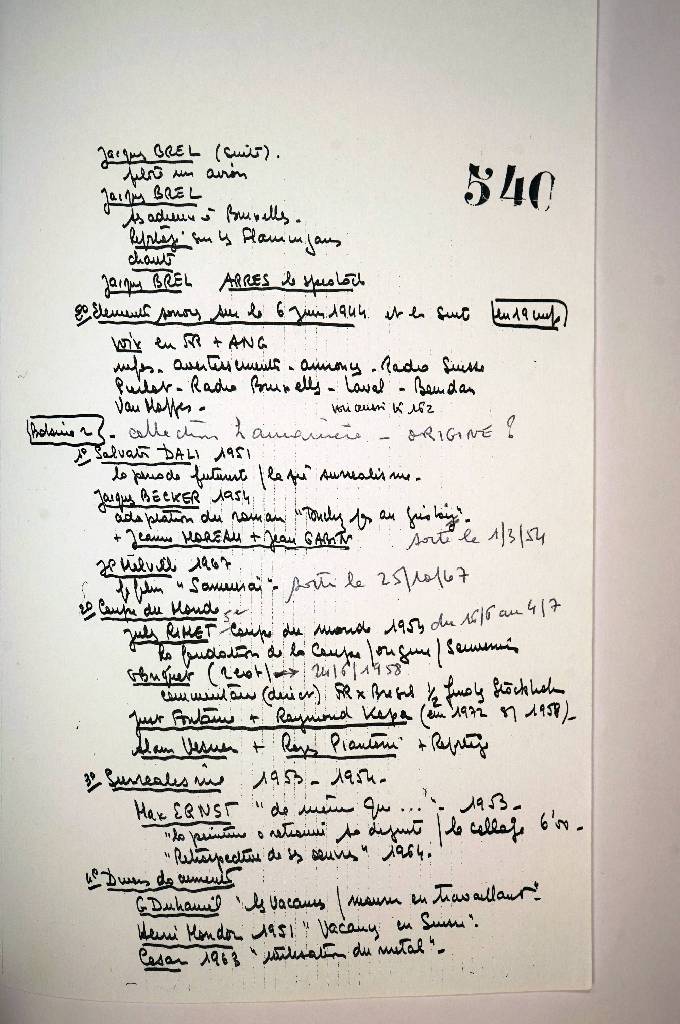 Jacques BREL (suite).
540
pilote un avion
Jacques BREL
ses adieux à Bruxelles.
Reportage sur les Flamingans
chanté
Jacques BREL APRES le spectacle
2° Elements sonores sur le 6 Juin 1944 et la suite en 19 cm/s
voix en FR + ANG
infos. avertissements - annonces - Radio Suisse
Radio Bruxelles - Laval -
voir aussi K 152
Bobine 2 - collection - ORIGINE ?
1° Salvador DALI 1951
la periode futuriste / la surrealisme.
Jacques BECKER 1954
adaptation du roman "Touchez pas au grisbi".
+ Jeanne MOREAU + Jean GABIN sorti le 1/3/54
JP Melville 1967
le film "Samourai" - sorti le 25/10/67
2° Coupe du Monde
Jules RIMET Coupe du monde 1953 du 16/6 au 4/7
la fondation de la Coupe / origine / Souvenirs
→ 24/6/1958
commentaire (direct) FR x Bresil ½ finale Stockholm
Just Fontaine + Raymond Kopa (en 1972 1958) -
+ Roger Piantoni + Reportage
3° Surrealisme 1953 - 1954 -
Max ERNST "de même que ..." - 1953 -
"la peinture a retrouvé sa dignité / le collage 6'00 -
"Retrospective de ses oeuvres" 1964.
4° Divers documents
G Duhamel "les vacances / mourir en travaillant" -
Henri Mondor 1951 "Vacances en Suisse".
Cesar 1963 "utilisation du metal" -